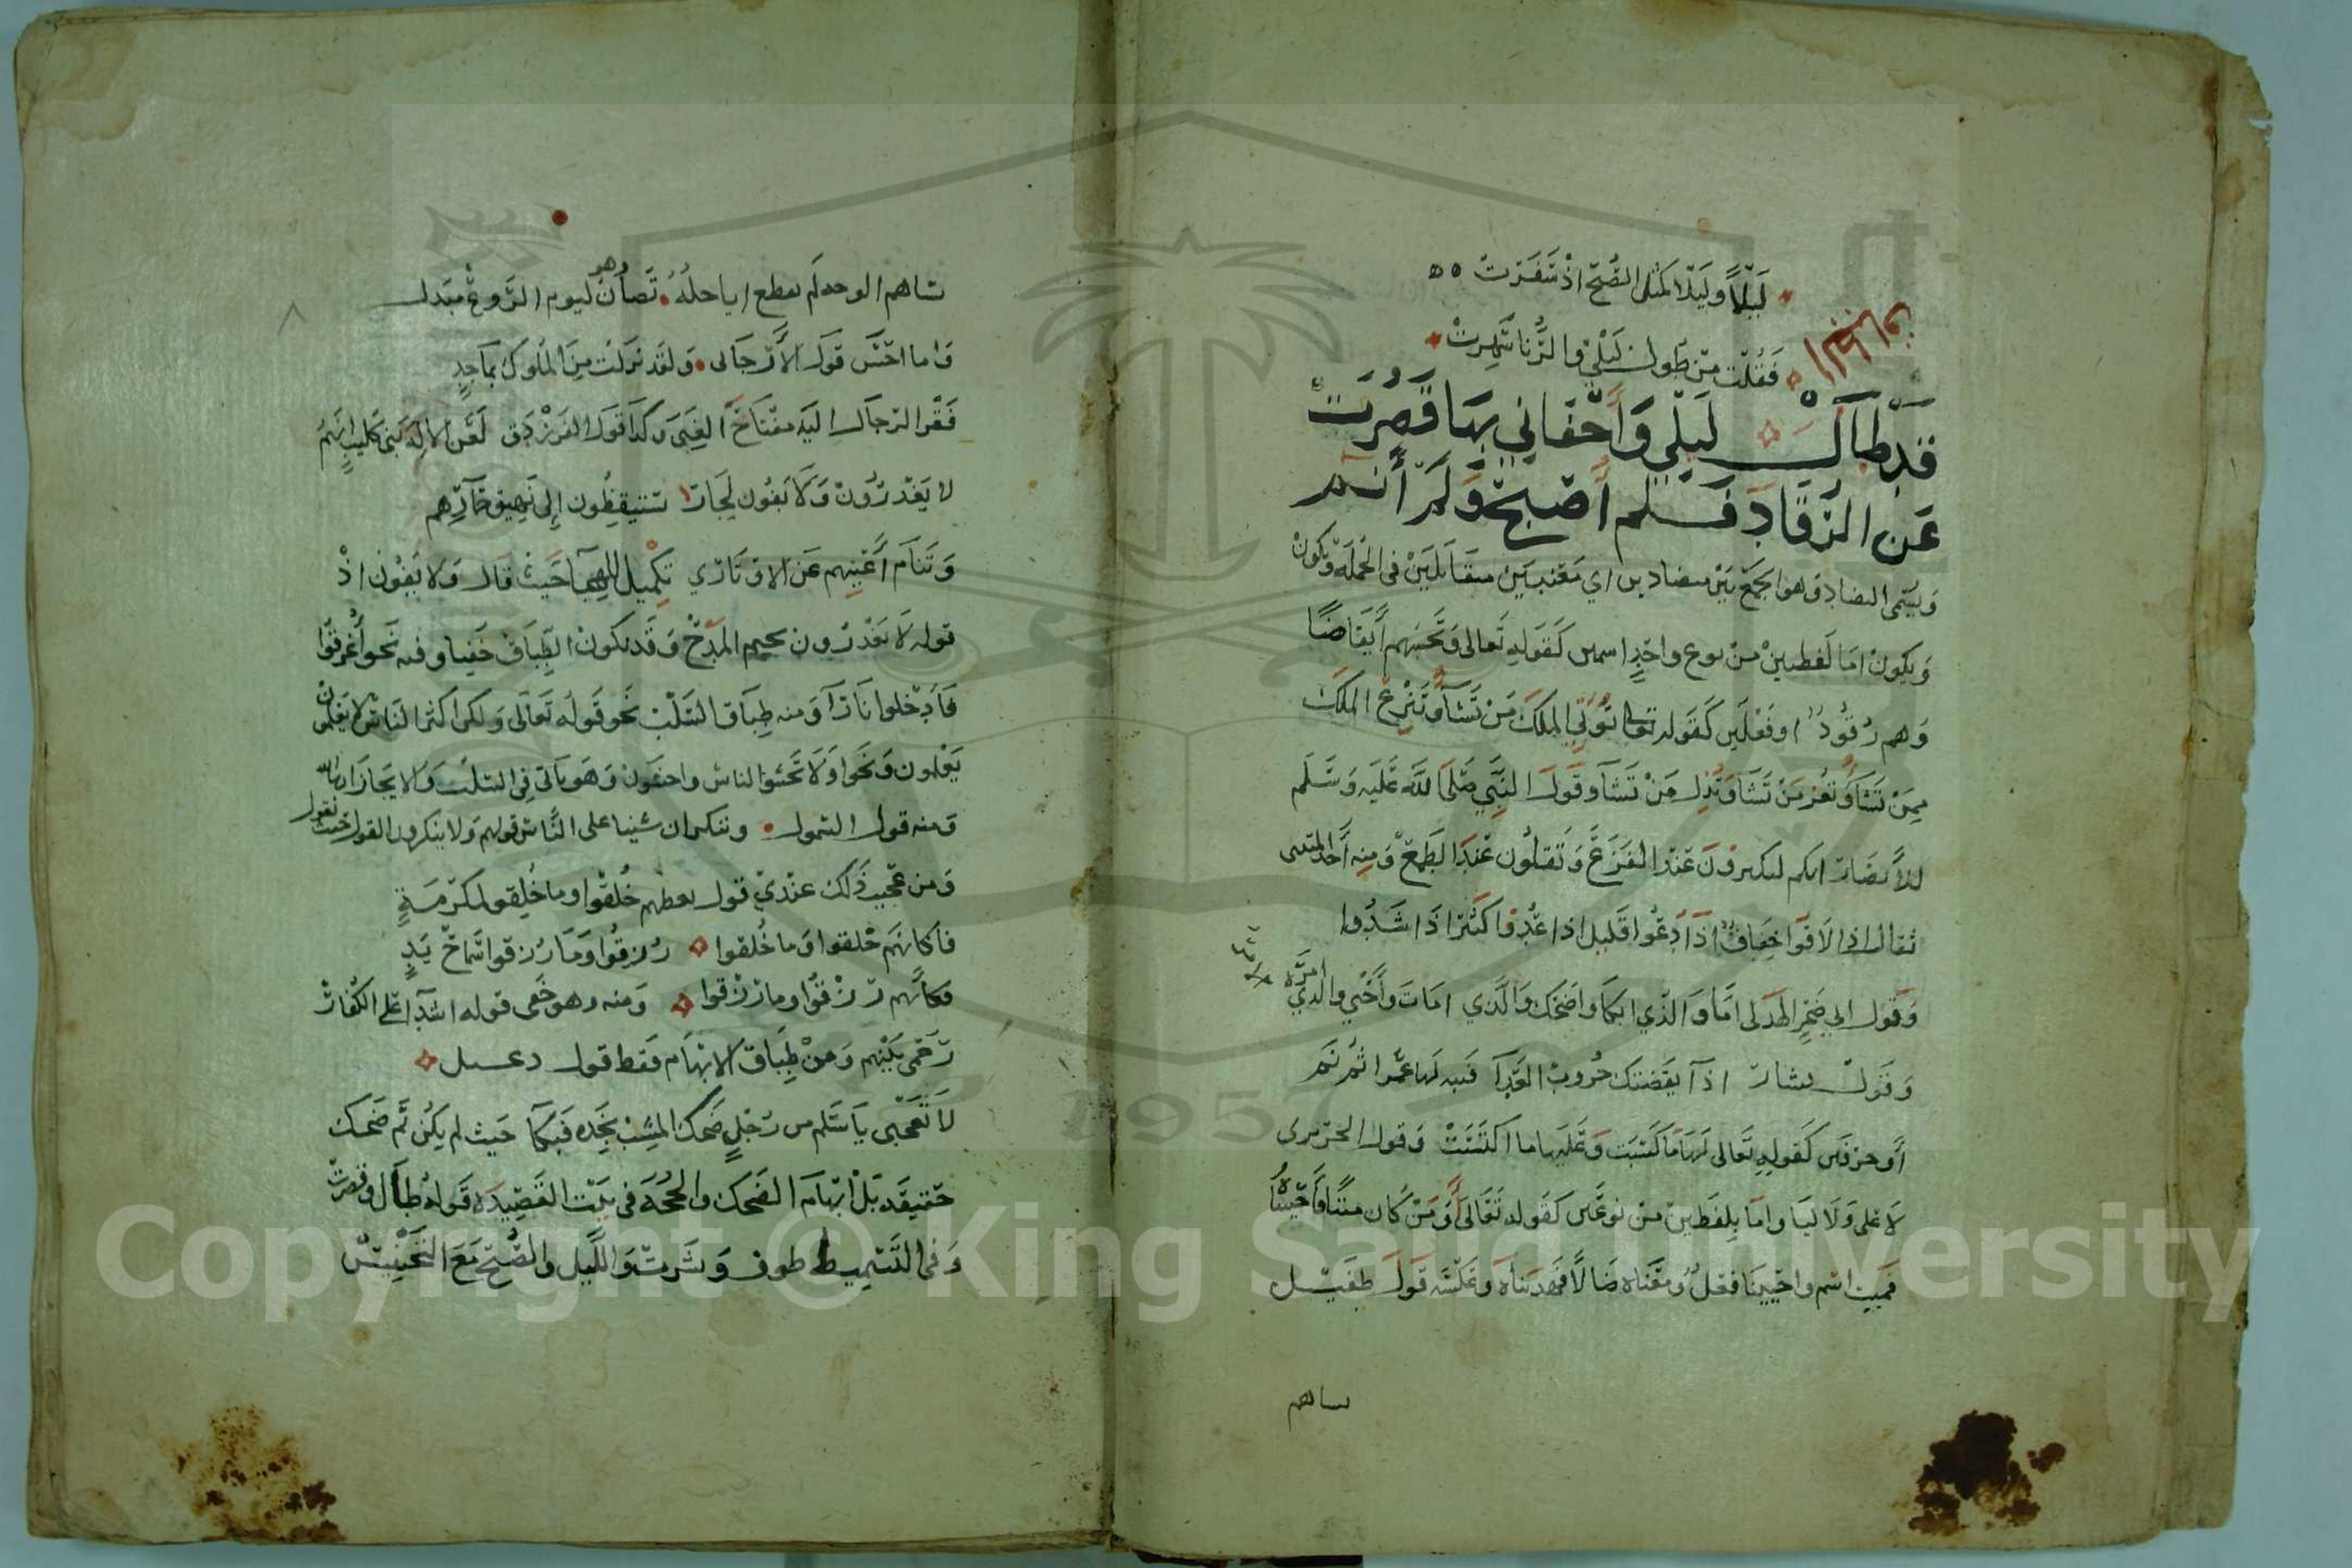 لَيْلًا وليلا كمثل الصُّبح اذ سَفَرَت
فقلت من طول ليلي والرُّنا شهرت
قد طال ليلي وأجفاني بها قصُرت
عن الرقاد فلم أصبح ولم أنم
ويسمى التضاد وهو الجمع بين متضادين اي معنيين متقابلين في الجملة ويكون
ويكون اما لفظين من نوع واحد اسمين كقوله تعالى وتحسبهم أيقاضًا
وهم رقود او فعلين كقوله تعالى تؤتي الملك من تشآ وتنزع الملك
ممن تشآ وتعز من تشا وتذل من تشآ وقول النبي صلى الله عليه وسلم
للأنصار انكم لتكثرون عند الفزع وتقلون عند الطمع ومنه أخذ المتنبي
ثقال اذا لاقوا خفاف اذا دعوا قليل اذا عدوا كثير اذا شدوا
وقول ابي ضخر الهدلي اما والذي ابكا واضحك والذي امات وأحيي والذي امره
وقول بشار اذا أيقضتك حروب العدآ فنبه لها عمرا ثم نم
أو حرفين كقوله تعالى لهاما كسبت وعليها ما اكتسبت وقول الحريري
لا علي ولا ليا واما بلفظين من نوعين كقوله تعالى أومن كان ميتا فأحييناه
فميت اسم واحيينا فعل ومعناه ضالا فهديناه وعكسه قول طفيل
ساهم
ساهم الوجه لم يقطع اباجله تصان وهو ليوم الروع مبتدل
واما احسن قول الأرجاني ولقد نزلت من الملوك بماجد
فقر الرجال اليه مفتاح الغنى وكدا قول الفرزدق لعن الاله بني كليب انهم
لا يغدرون ولا يفون لجار تستيقظون إلى نهيق حمارهم
وتنام أعينهم عن الاوتار تكميل الهجا حيث قال ولا يفون اذ
قوله لا يغدرون يحتم المدح وقد يكون الطباق خفيا وفيه نحو أغرقوا
فأدخلوا نارا ومنه طباق السلب نحو قوله تعالى ولكن اكثر الناس لا يعلمون
يعلمون ونحو اولا تخشوا الناس واخشون وهو يأتي في السلب
ومنه قول السمول وننكر ان شينا على الناس قولهم ولا ينكرون القول حيث نقول
ومن عجيب ذلك عندي قول بعظهم خلقوا وما خلقو لمكرمة
فأكانهم خلقوا وما خلقوا رزقوا وما رزقوا سماح يد
فكأنهم رزقوا وما رزقوا ومنه وهو خفي قوله اشدآ على الكفار
رحمى بينهم ومن طباق الابهام فقط قول دعبل
لا تعجبي يا سلم من رجل ضحك المشيب بخده فبكا حيث لم يكن ثم ضحك
حقيقه بل ابهام الضحك والحجه في بيت القصيده قوله طال وقصرت
وفي التسميط طول والليل والصبح مع التجنيس
Copyright © King Saud University
1957